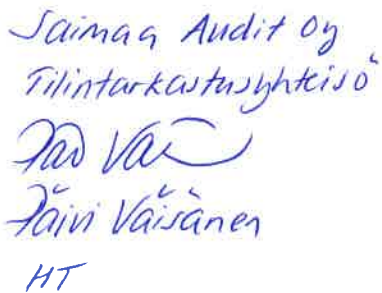 Saimaa Audit Oy
Tilintarkastusyhteisö
Päivi Väisänen
HT